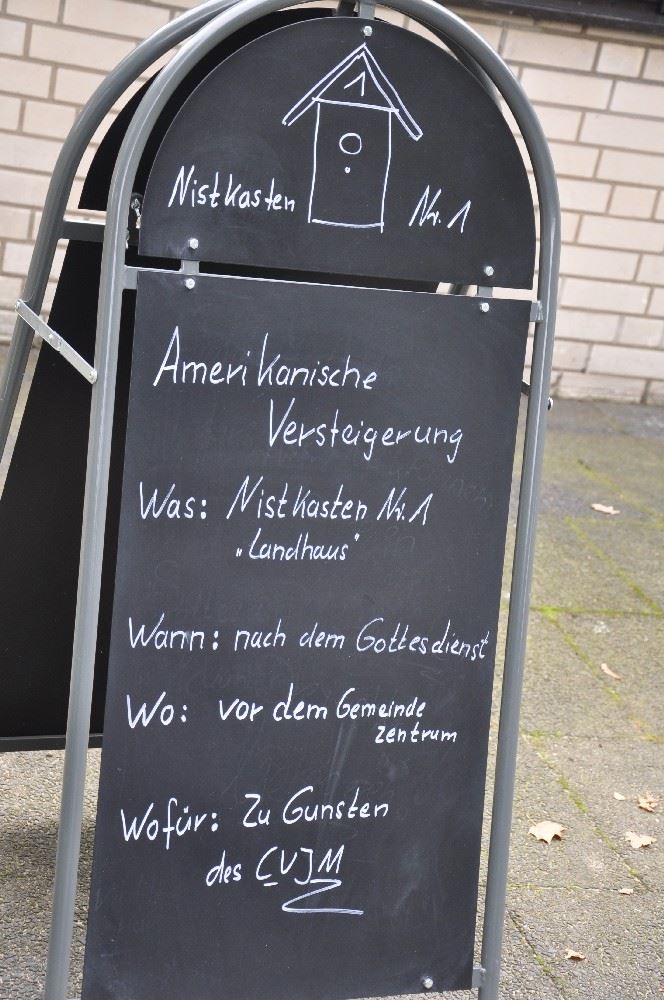 1
Nistkasten Nr. 1
Amerikanische
Versteigerung
Was: Nistkasten Nr. 1
„Landhaus"
Wann: nach dem Gottesdienst
Wo: vor dem Gemeinde
zentrum
Wofür: Zu Gunsten
des CVJM